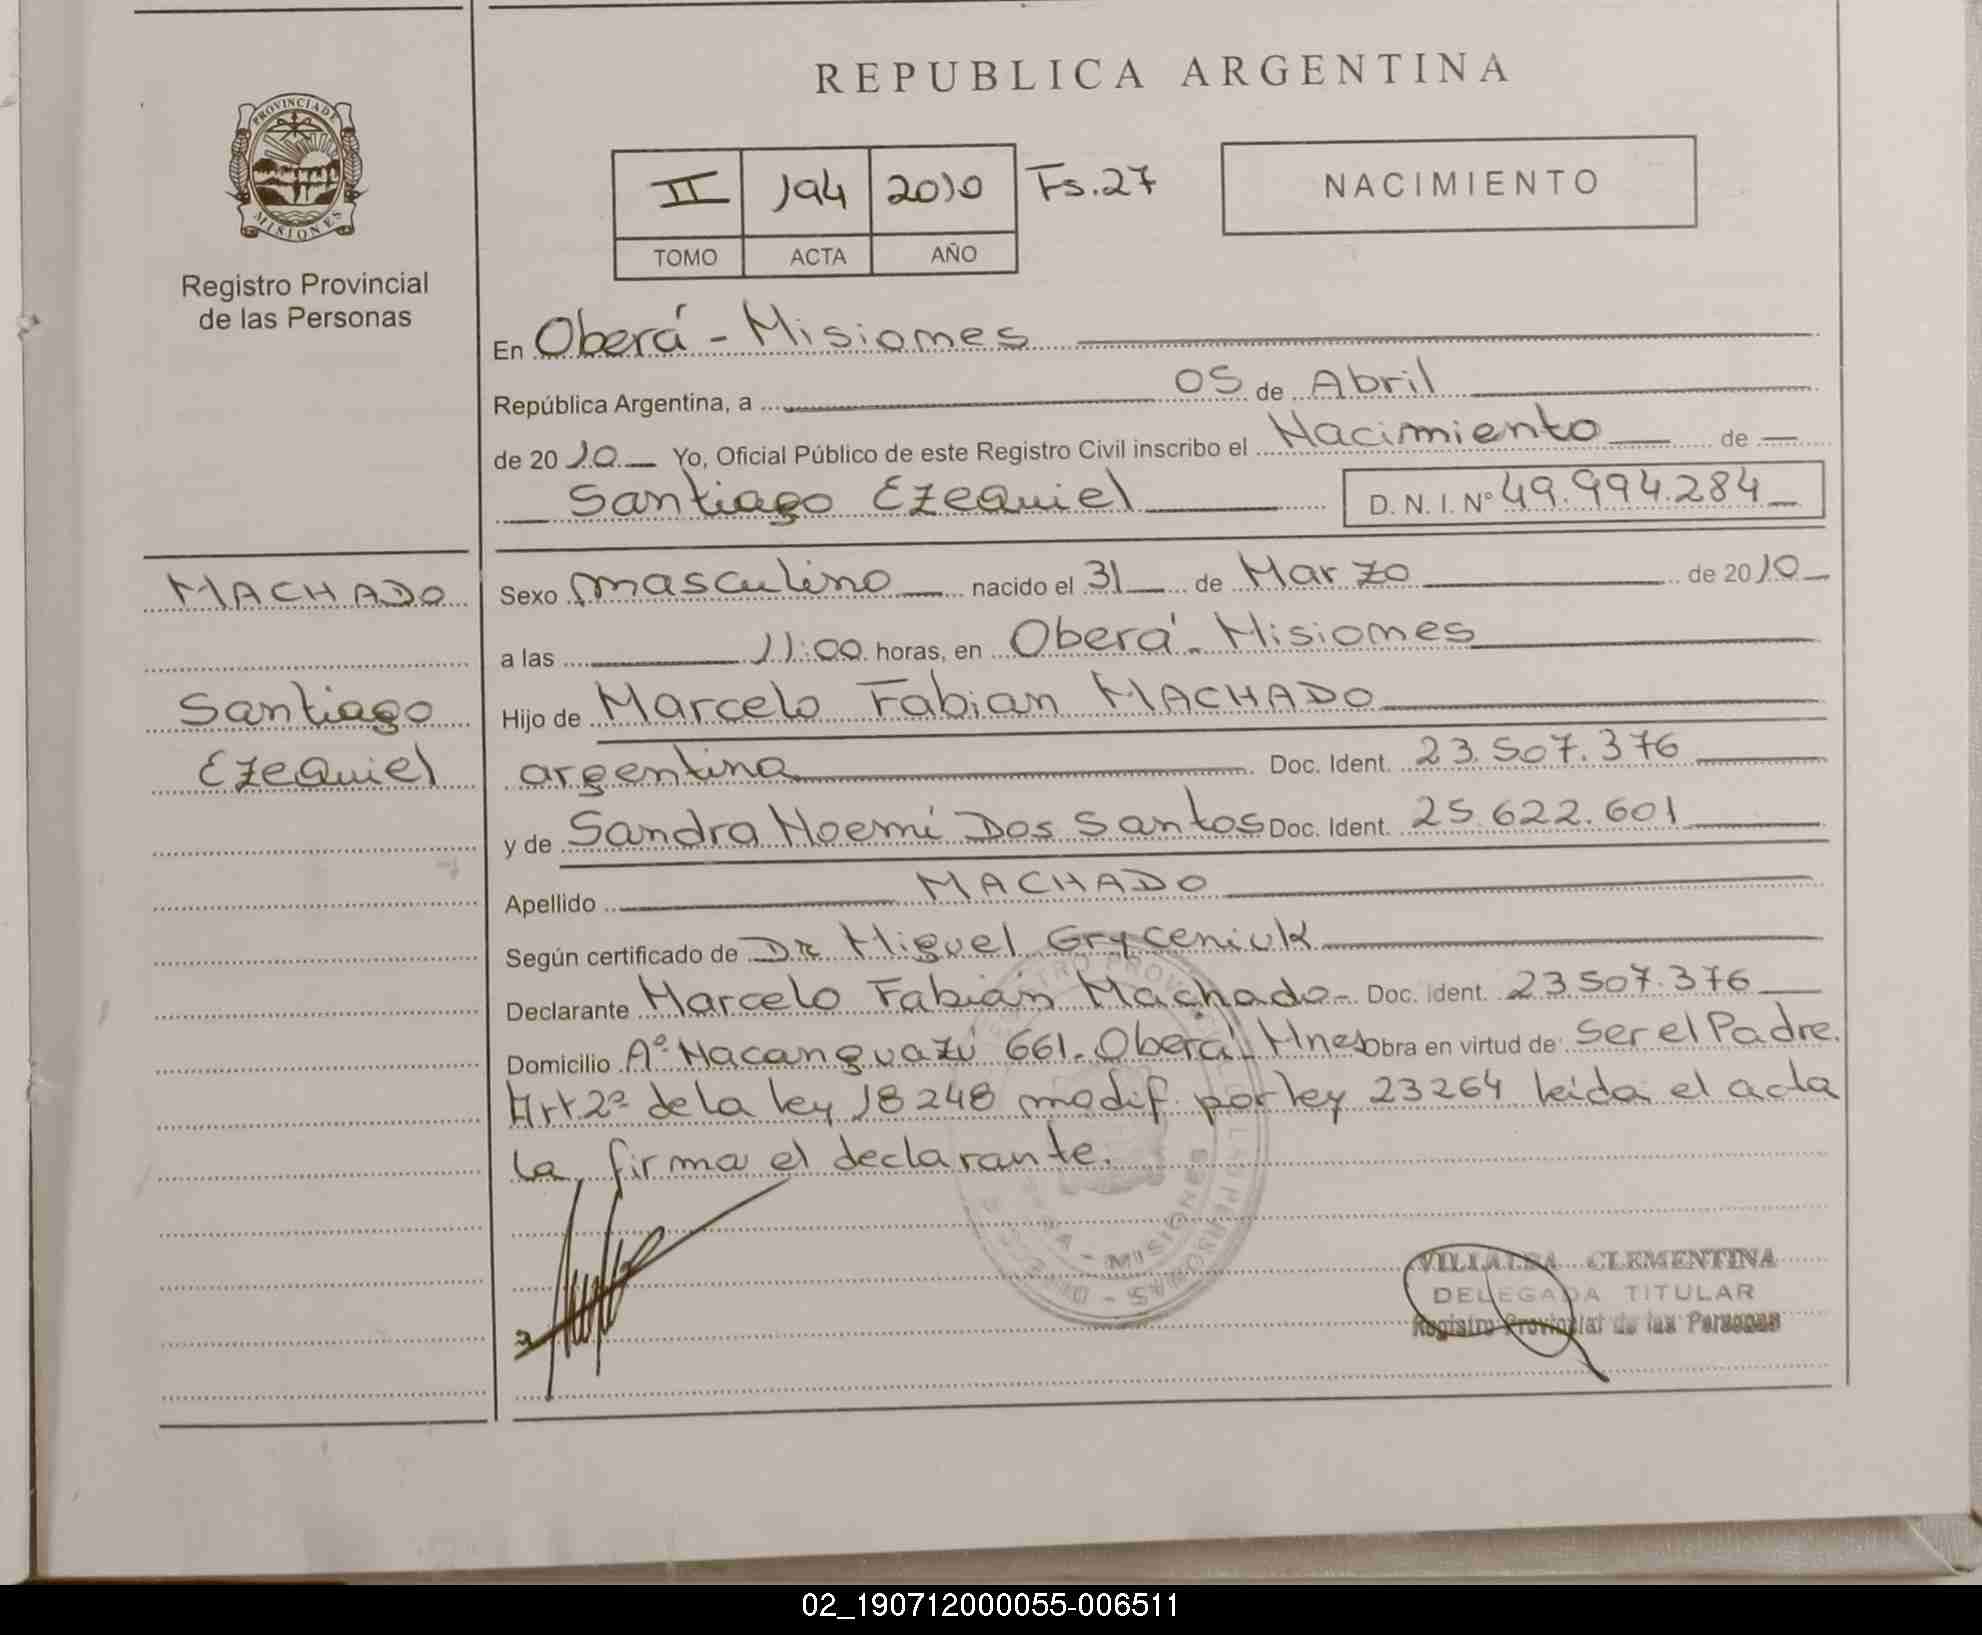 REPUBLICA ARGENTINA
PROVINCIA DE
MISIONES
Registro Provincial
de las Personas
II 194 2010 Fs.27
TOMO ACTA AÑO
NACIMIENTO
En Oberá - Misiones
República Argentina, a 05 de Abril
de 2010 Yo, Oficial Público de este Registro Civil inscribo el Nacimiento de
Santiago Ezequiel D. N. I. Nº 49.994.284
MACHADO
Santiago
Ezequiel
Sexo masculino nacido el 31 de Marzo de 2010
a las 11:00 horas, en Oberá - Misiones
Hijo de Marcelo Fabian MACHADO
argentina Doc. Ident. 23.507.376
y de Sandra Noemí Dos Santos Doc. Ident. 25.622.601
Apellido MACHADO
Según certificado de Dr Miguel Gryceniuk
Declarante Marcelo Fabián Machado - Doc. Ident. 23.507.376
Domicilio Aº Ñacanguazú 661 - Oberá - Mnes Obra en virtud de Ser el Padre.
Art 2º de la ley 18248 modif. por ley 23264 leida el acta
la firma el declarante.
VILLALBA CLEMENTINA
DELEGADA TITULAR
Registro Provincial de las Personas
02_190712000055-006511